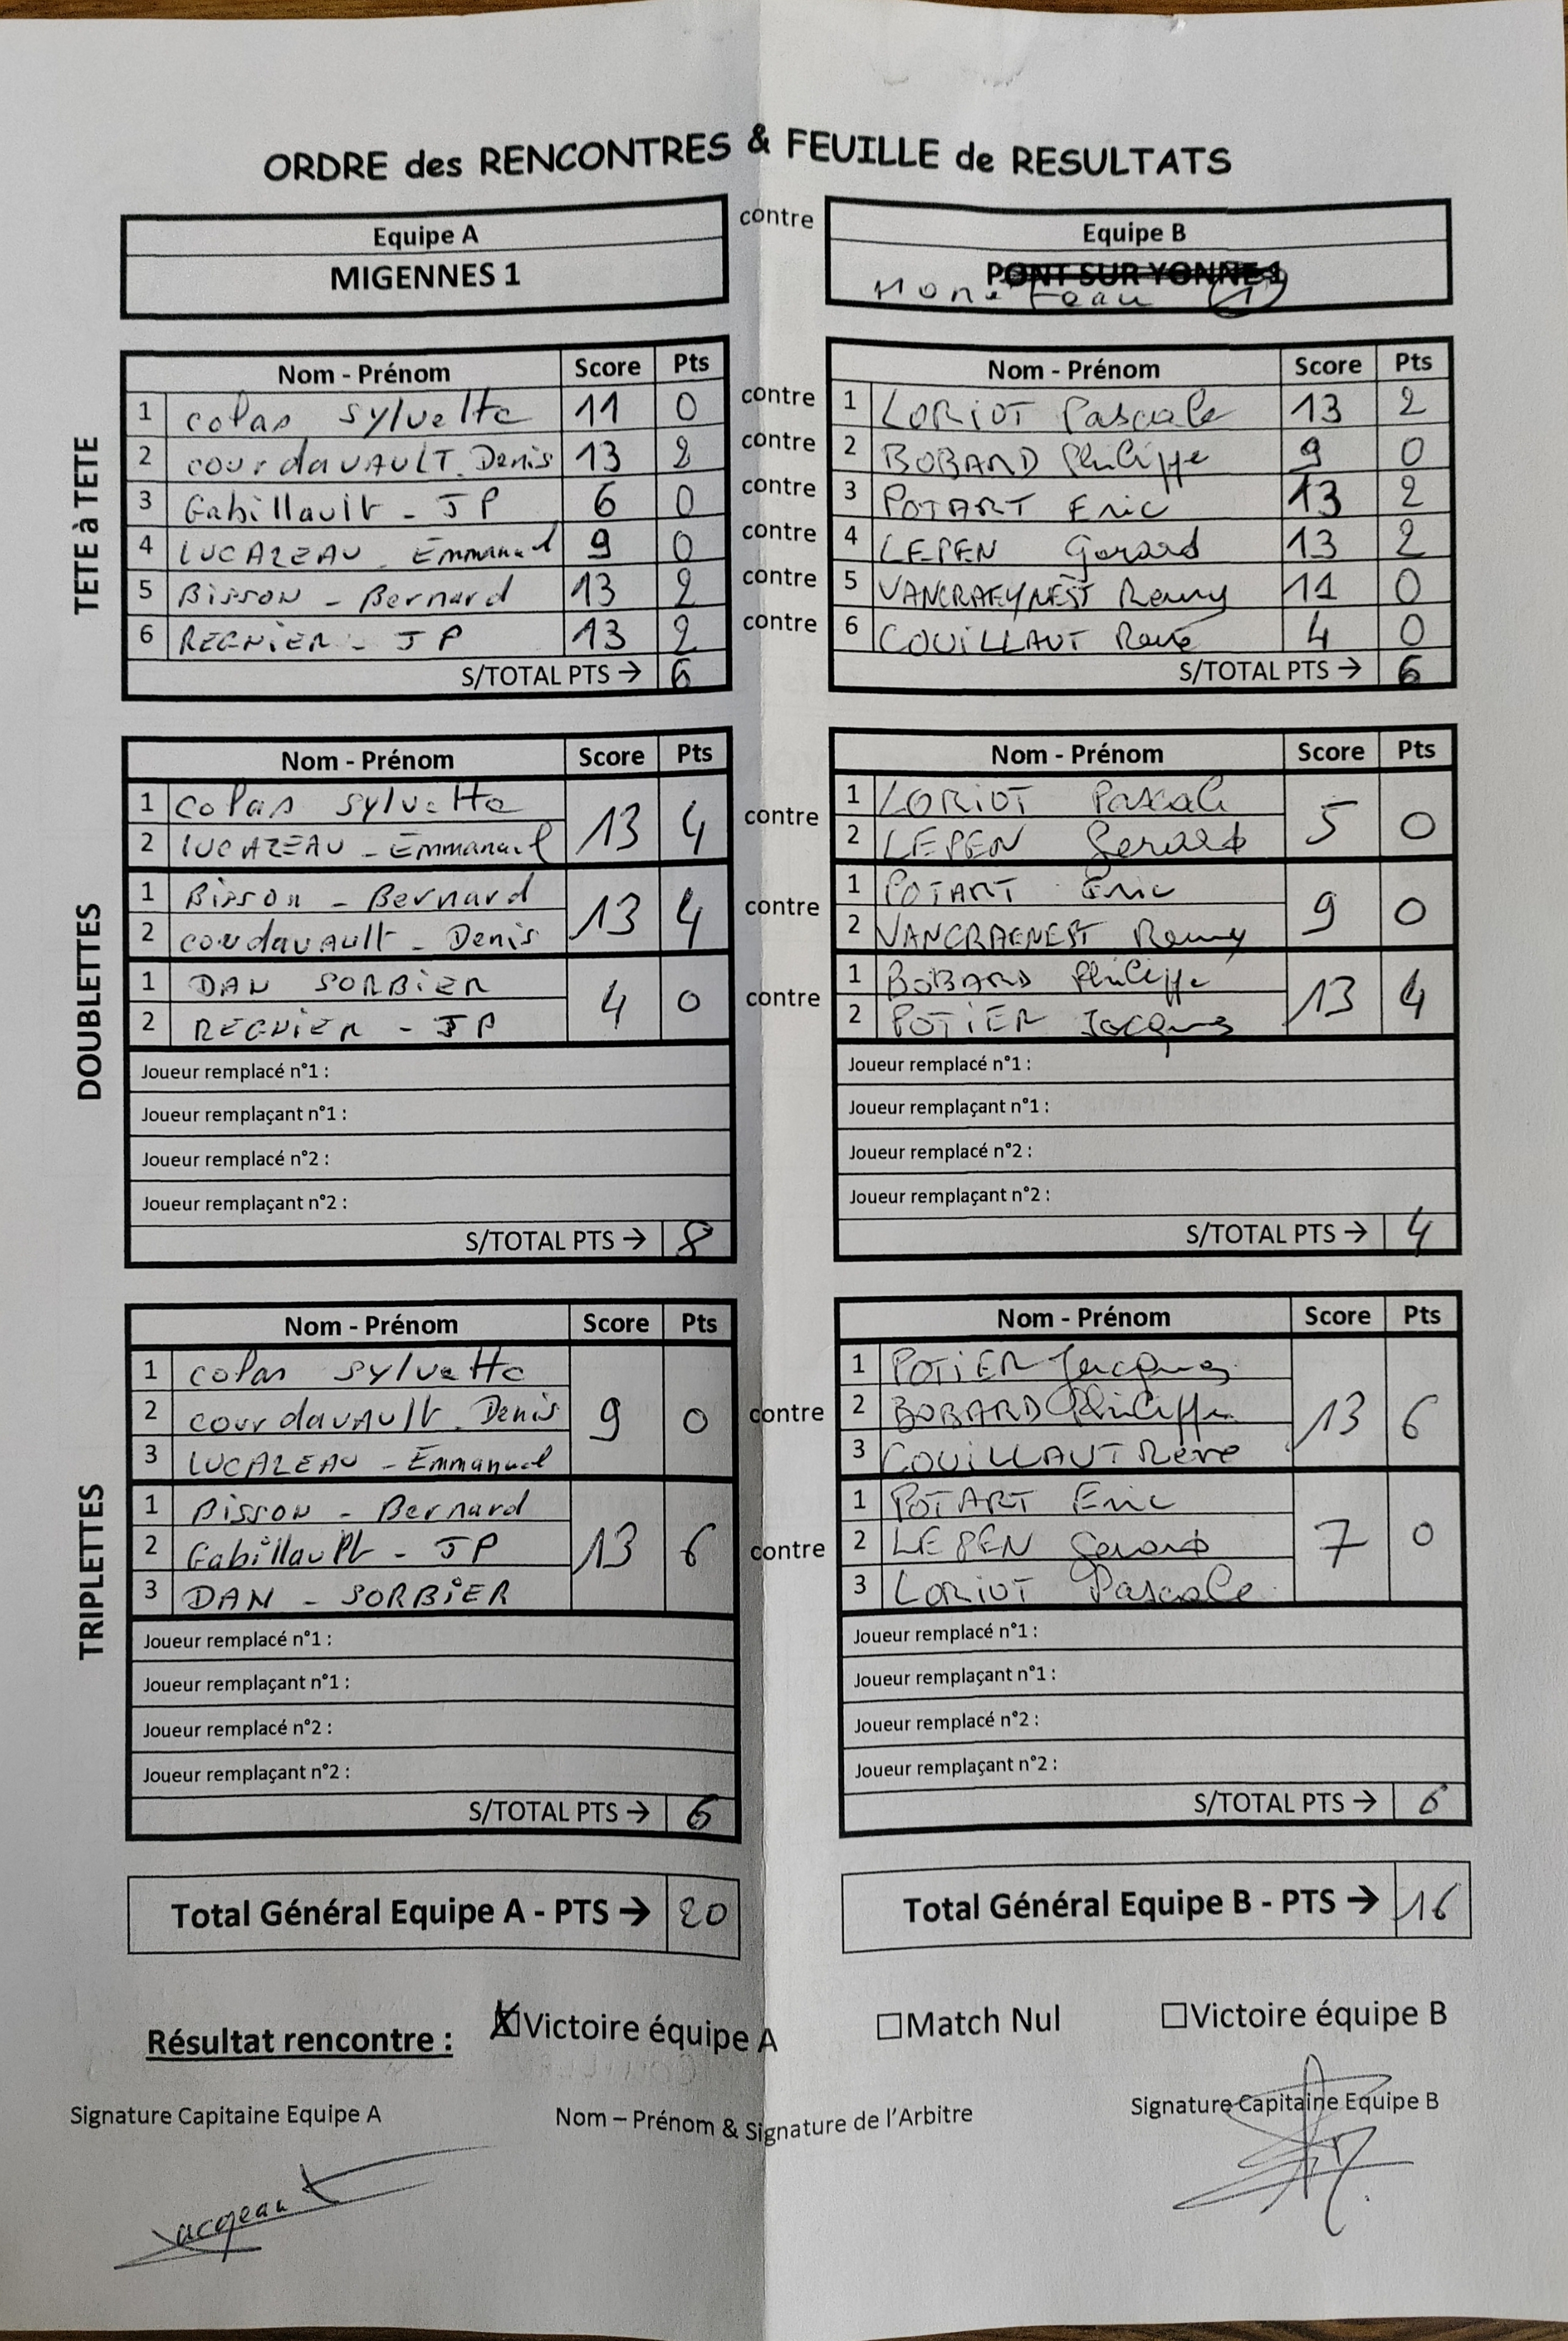 ORDRE des RENCONTRES & FEUILLE de RESULTATS
Equipe A contre Equipe B
MIGENNES 1 PONT SUR YONNE 1
Moneteau 1
Nom - Prénom Score Pts Nom - Prénom Score Pts
TETE à TETE
1 Colas Sylvette 11 0 contre 1 LORIOT Pascale 13 2
2 courdavAULT. Denis 13 2 contre 2 BOBARD Philippe 9 0
3 Gabillault - JP 6 0 contre 3 POTART Eric 13 2
4 LUCAZEAU - Emmanuel 9 0 contre 4 LEPEN Gerard 13 2
5 Bisson - Bernard 13 2 contre 5 VANCRAEYNEST Remy 11 0
6 REGNIER - JP 13 2 contre 6 COUILLAUT René 4 0
S/TOTAL PTS → 6 S/TOTAL PTS → 6
Nom - Prénom Score Pts Nom - Prénom Score Pts
DOUBLETTES
1 Colas Sylvette 1 LORIOT Pascale
13 4 contre 5 0
2 LUCAZEAU - Emmanuel 2 LEPEN Gerard
1 Bisson - Bernard 1 POTART Eric
13 4 contre 9 0
2 courdavAult - Denis 2 VANCRAENEST Remy
1 DAN SORBIER 1 BOBARD Philippe
4 0 contre 13 4
2 REGNIER - JP 2 POTIER Jacques
Joueur remplacé n°1 : Joueur remplacé n°1 :
Joueur remplaçant n°1 : Joueur remplaçant n°1 :
Joueur remplacé n°2 : Joueur remplacé n°2 :
Joueur remplaçant n°2 : Joueur remplaçant n°2 :
S/TOTAL PTS → 8 S/TOTAL PTS → 4
Nom - Prénom Score Pts Nom - Prénom Score Pts
TRIPLETTES
1 Colas Sylvette 1 POTIER Jacques
2 courdavAult. Denis 9 0 contre 2 BOBARD Philippe 13 6
3 LUCAZEAU - Emmanuel 3 COUILLAUT René
1 Bisson - Bernard 1 POTART Eric
2 Gabillault - JP 13 6 contre 2 LEPEN Gerard 7 0
3 DAN - SORBIER 3 LORIOT Pascale
Joueur remplacé n°1 : Joueur remplacé n°1 :
Joueur remplaçant n°1 : Joueur remplaçant n°1 :
Joueur remplacé n°2 : Joueur remplacé n°2 :
Joueur remplaçant n°2 : Joueur remplaçant n°2 :
S/TOTAL PTS → 6 S/TOTAL PTS → 6
Total Général Equipe A - PTS → 20 Total Général Equipe B - PTS → 16
Résultat rencontre : Victoire équipe A Match Nul Victoire équipe B
Signature Capitaine Equipe A Nom – Prénom & Signature de l'Arbitre Signature Capitaine Equipe B